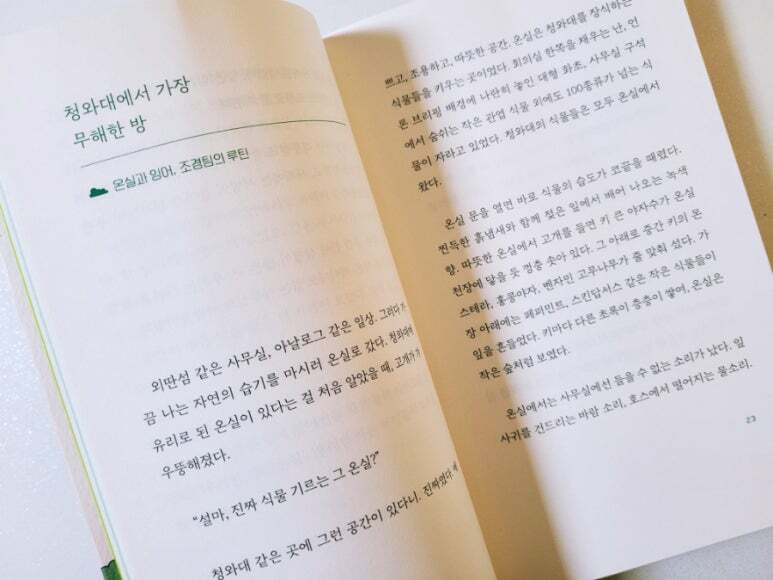 청와대에서 가장
무해한 방
온실과 잉어, 조경팀의 루틴
외딴섬 같은 사무실, 아날로그 같은 일상. 그러다 가
끔 나는 자연의 습기를 마시러 온실로 갔다. 청와대에
유리로 된 온실이 있다는 걸 처음 알았을 때, 고개가 갸
우뚱해졌다.
“설마, 진짜 식물 기르는 그 온실?”
청와대 같은 곳에 그런 공간이 있다니. 진짜였다.
쁘고, 조용하고, 따뜻한 공간. 온실은 청와대를 장식하는
식물들을 키우는 곳이었다. 회의실 한쪽을 채우는 난, 언
론 브리핑 배경에 나란히 놓인 대형 화초, 사무실 구석
에서 숨쉬는 작은 관엽 식물 외에도 100종류가 넘는 식
물이 자라고 있었다. 청와대의 식물들은 모두 온실에서
왔다.
온실 문을 열면 바로 식물의 습도가 코끝을 때렸다.
찐득한 흙냄새와 함께 젖은 잎에서 배어 나오는 녹색
향. 따뜻한 온실에서 고개를 들면 키 큰 야자수가 온실
천장에 닿을 듯 껑충 솟아 있다. 그 아래로는 중간 키의 몬
스테라, 홍콩야자, 벤자민 고무나무가 줄 맞춰 섰다. 가
장 아래에는 페퍼민트, 스킨답서스 같은 작은 식물들이
잎을 흔들었다. 키마다 다른 초록이 층층이 쌓여, 온실은
작은 숲처럼 보였다.
온실에서는 사무실에선 들을 수 없는 소리가 났다. 잎
사귀를 건드리는 바람 소리, 호스에서 떨어지는 물소리.
23